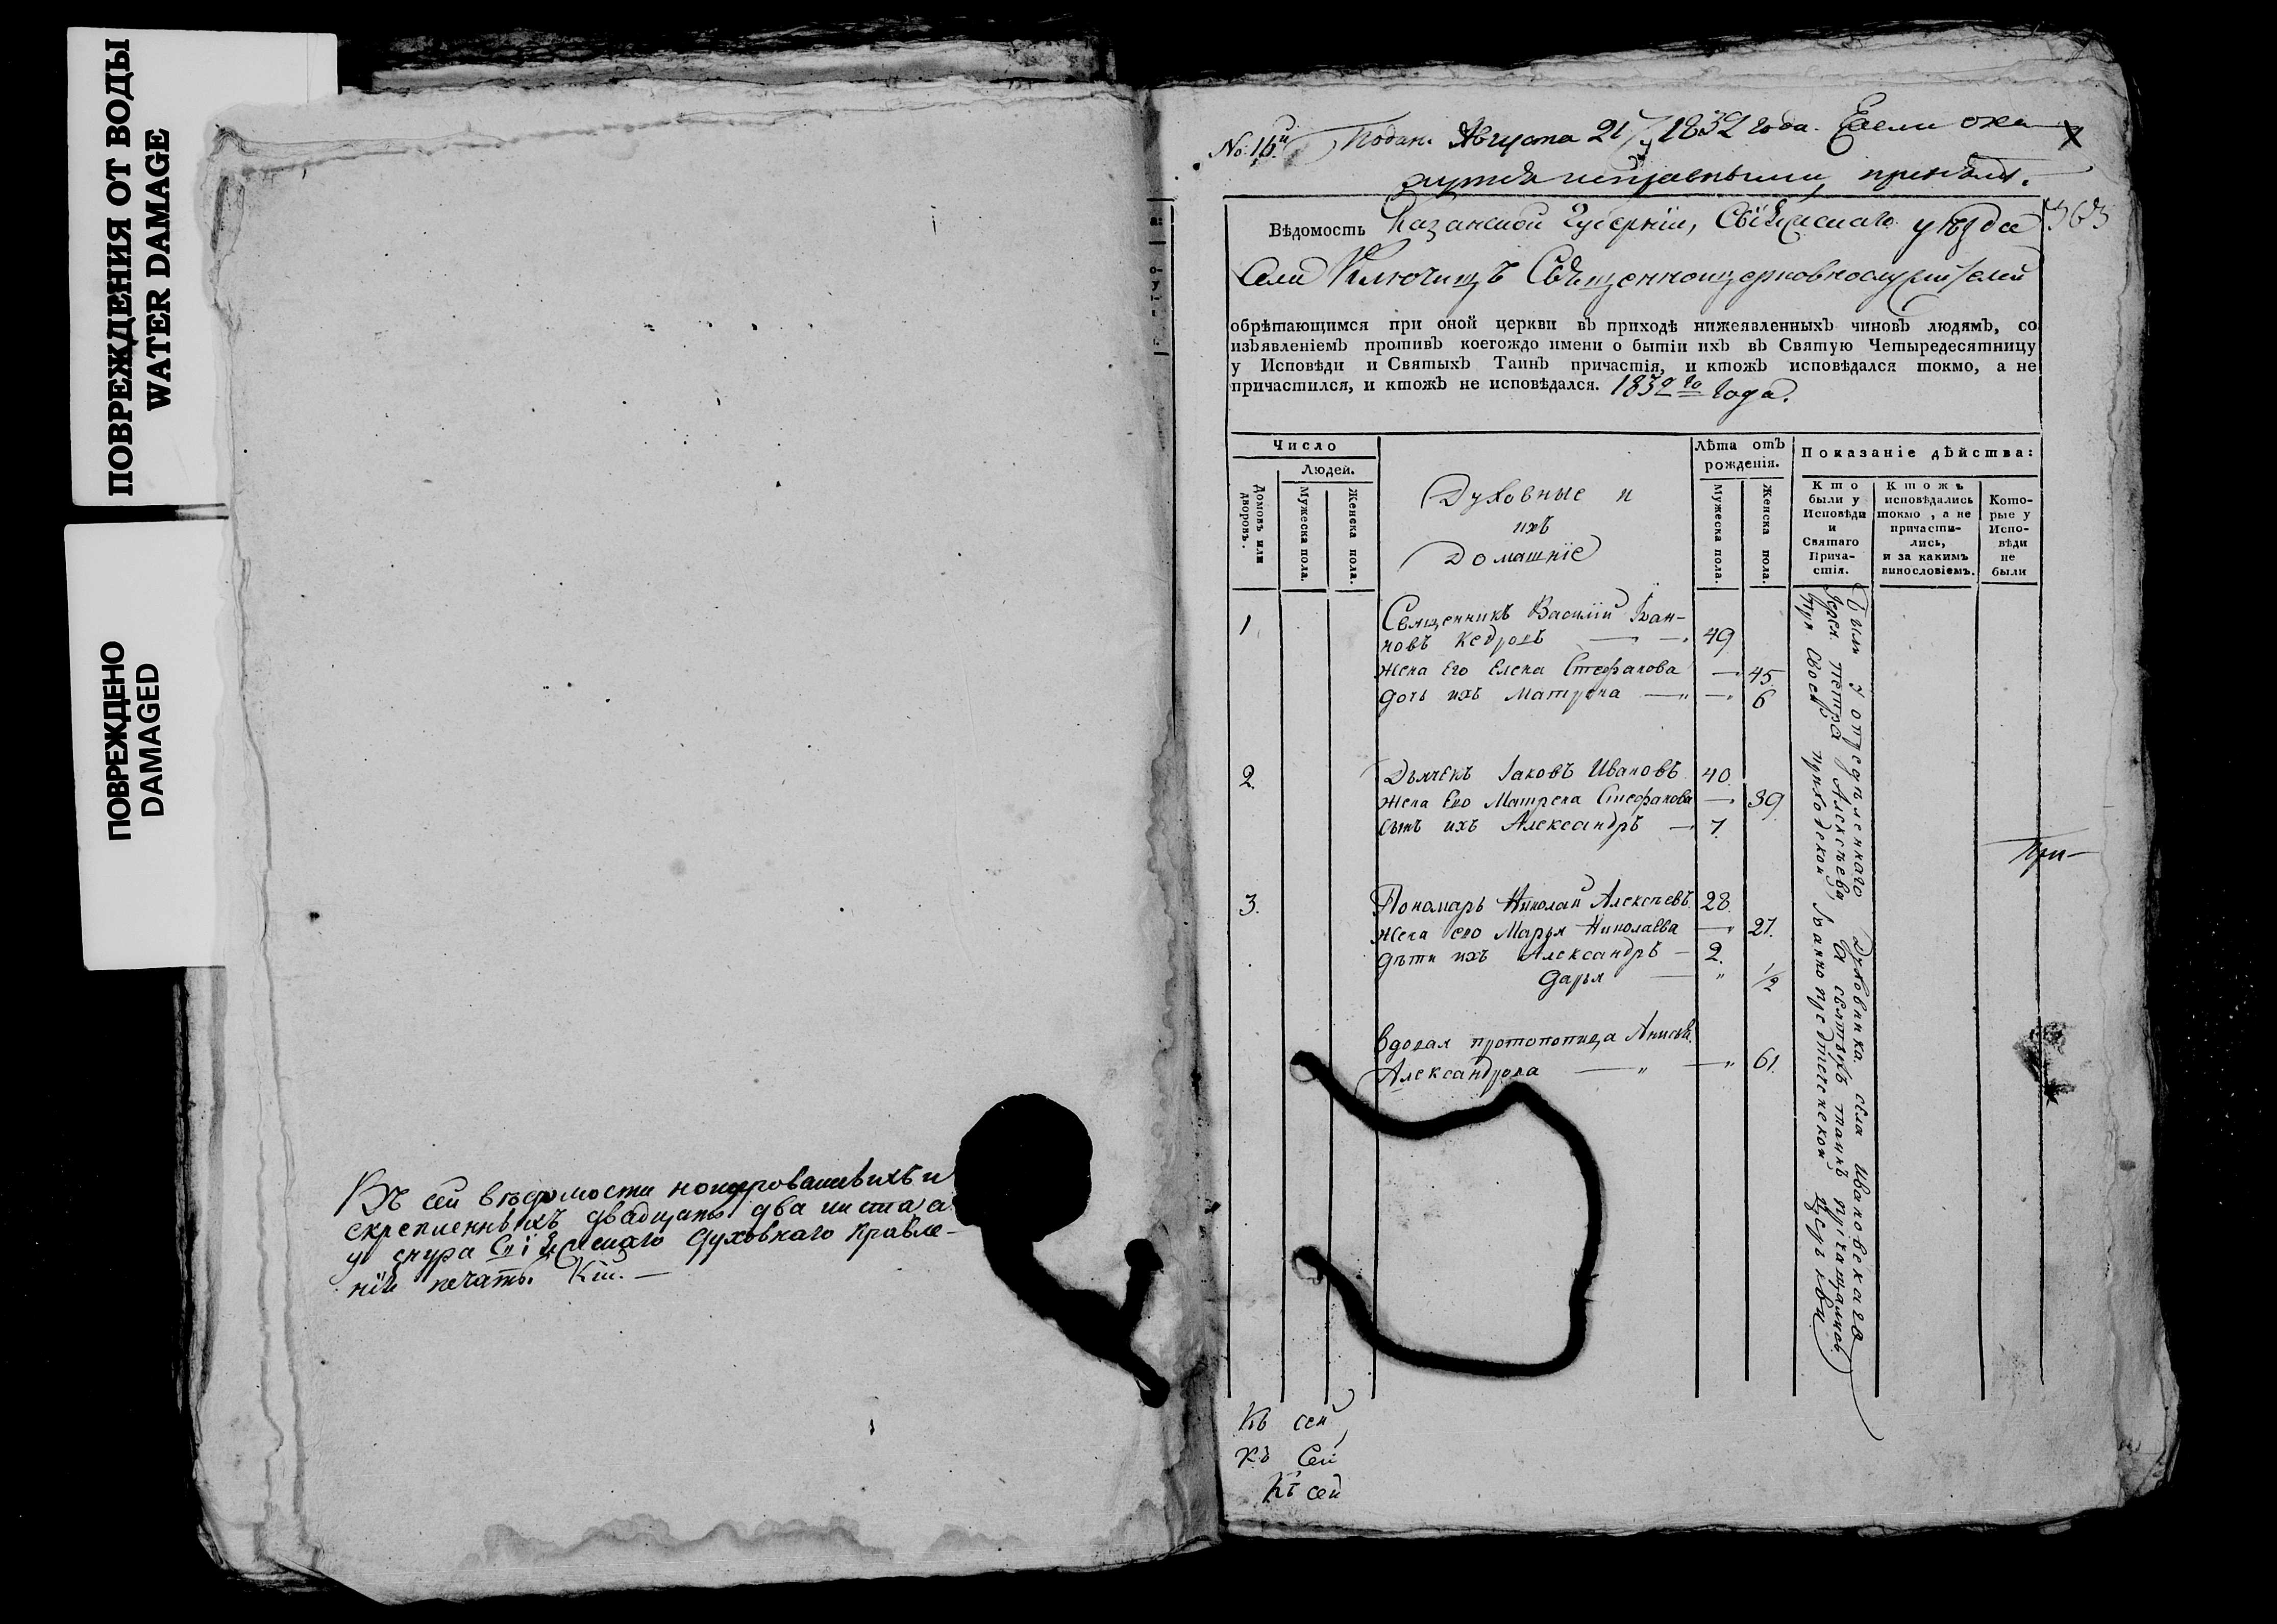 ПОВРЕЖДЕНИЯ ОТ ВОДЫ
WATER DAMAGE
ПОВРЕЖДЕНО
DAMAGED
Въ сей вѣдомости номерованныхъ и
скрепленныхъ двадцать два листа, а
у снура Свiяжскаго Духовнаго Правле-
нiя печать.
No. 16й Подан. Августа 21 1832 года. Если ока
жутся исправными, принять.
363
Вѣдомость Казанской Губернiи, Свiяжскаго уѣзда
Села Ключищъ Священноцерковнослужителей
обрѣтающимся при оной церкви въ приходѣ нижеявленныхъ чиновъ людямъ, со
изъявленiемъ противъ коегождо имени о бытiи ихъ въ Святую Четыредесятницу
у Исповѣди и Святыхъ Таинъ причастiя, и ктожъ исповѣдался токмо, а не
причастился, и ктожъ не исповѣдался. 1832го Года.
Число
Людей.
Домовъ или дворовъ.
Мужеска пола.
Женска пола.
Духовные и
ихъ
Домашнiе
Лѣта отъ
рожденiя.
Мужеска пола.
Женска пола.
Показанiе дѣйства:
Кто
были у
Исповѣди
и
Святаго
Прича-
стiя.
Ктожъ
исповѣдались
токмо, а не
причасти-
лись,
и за какимъ
винословiемъ.
Кото-
рые у
Испо-
вѣди
не
были
1 Священникъ Василiй Iван-
новъ Кедровъ — — 49
жена Его Елена Стефанова — 45
дочь ихъ Матрона — — 6
2. Дьячекъ Iаковъ Ивановъ 40
жена Его Матрена Стефанова — 39
сынъ ихъ Александръ — 7
3. Пономарь Николай Алексѣевъ 28
жена его Марья Николаева — 27.
дѣти ихъ Александръ — 2.
Дарья — " 1/2
вдовая протопопица Анисья
Александрова — " — " 61
Были у опредѣленнаго Духовника села Ивановскаго
Iерея Петра Алексѣева, а святыхъ таинъ прiчащались
при своей приходской Iоаннопредтеченской церкви
При-
Къ сей
къ Сей
Къ сей